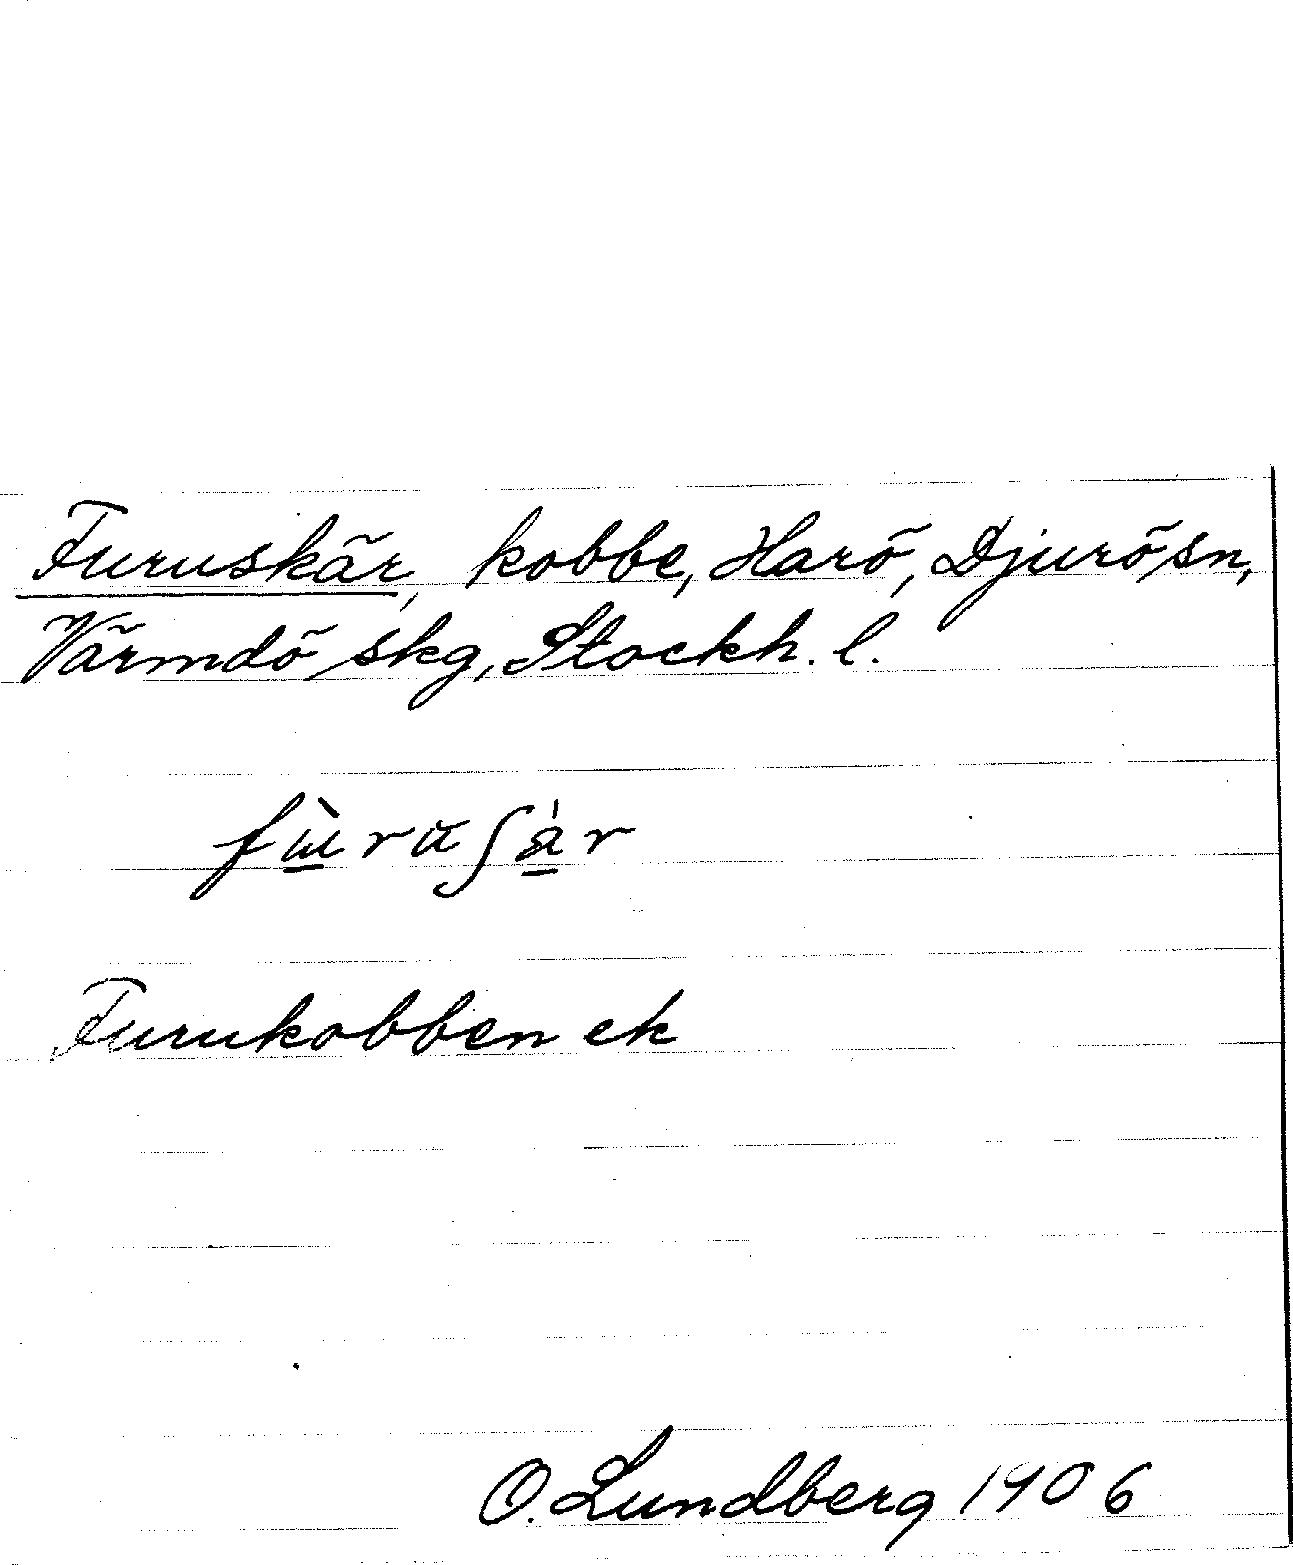 Furuskär, kobbe, Harö, Djurösn,
Värmdö skg, Stockh. l.
Furukobben ek
O. Lundberg 1906